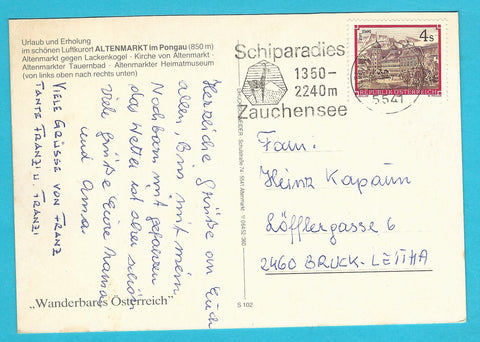 Urlaub und Erholung
im schönen Luftkurort ALTENMARKT im Pongau (850 m)
Altenmarkt gegen Lackenkogel · Kirche von Altenmarkt ·
Altenmarkter Tauernbad · Altenmarkter Heimatmuseum
(von links oben nach rechts unten)
Herzliche Grüße an Euch
allen, Bin mit mein
Nachbarn mit gefahren
das Wetter ist aber schön
Viele Grüße Eure Mama
und Oma
VIELE GRÜSSE VON FRANZ
TANTE FRANZI U. FRANZI
„Wanderbares Österreich"
S 102
Schiparadies
1350–
2240 m
Zauchensee
5541
4 s
REPUBLIK ÖSTERREICH
Fam.
Heinz Kapaun
Löfflergasse 6
2460 BRUCK-LEITHA